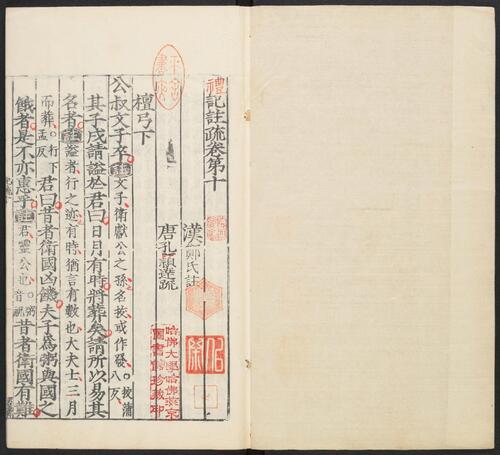 禮記註疏卷第十
漢鄭氏註
唐孔穎達疏
檀弓下
公叔文子卒註文子衛獻公之孫名拔或作發○拔蒲八反
其子戍請諡於君曰日月有時將葬矣請所以易其
名者註諡者行之迹有時猶言有數也大夫士三月
而葬○行下孟反君曰昔者衛國凶饑夫子為粥與國之
餓者是不亦惠乎註君靈公也○粥音祝昔者衛國有難
哈佛大學哈佛燕京
圖書館珍藏印